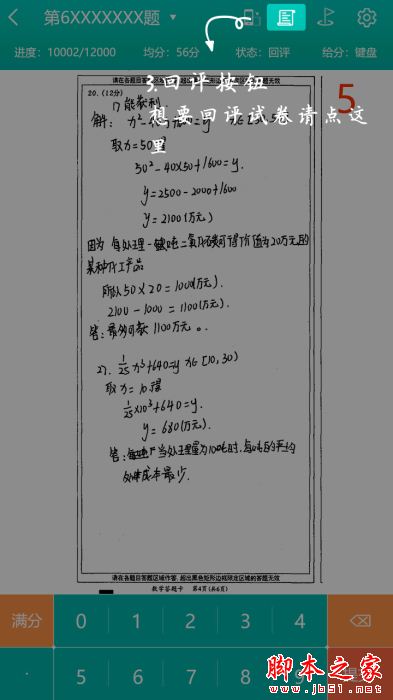 第6XXXXXXX题
进度：10002/12000 均分：56分 状态：回评 给分：键盘
请在各题目答题区域
形边框限定区域的答题无效
3.回评按钮
5
想要回评试卷请点这
里
20.（12分）
(1) 能获利
解：
取x=50
50²-40×50+1600=y.
y=2500-2000+1600
y=2100(万元)
因为 每处理一吨二氧化碳可得价值为20万元的
某种化工产品
所以50×20=1000(万元).
2100-1000=1100(万元).
答：最多可获 1100万元。
2). 1/25 x³+640=y x∈[10,30)
取x=10得
1/25×10³+640=y.
y=680(万元).
答：当处理量为10吨时.每吨的平均
处理成本最少.
请在各题目答题区域作答，超出黑色矩形边框限定区域的答题无效
数学答题卡 第4页(共6页)
满分 0 1 2 3 4
· 5 6 7 8 9
脚本之家
www.jb51.net